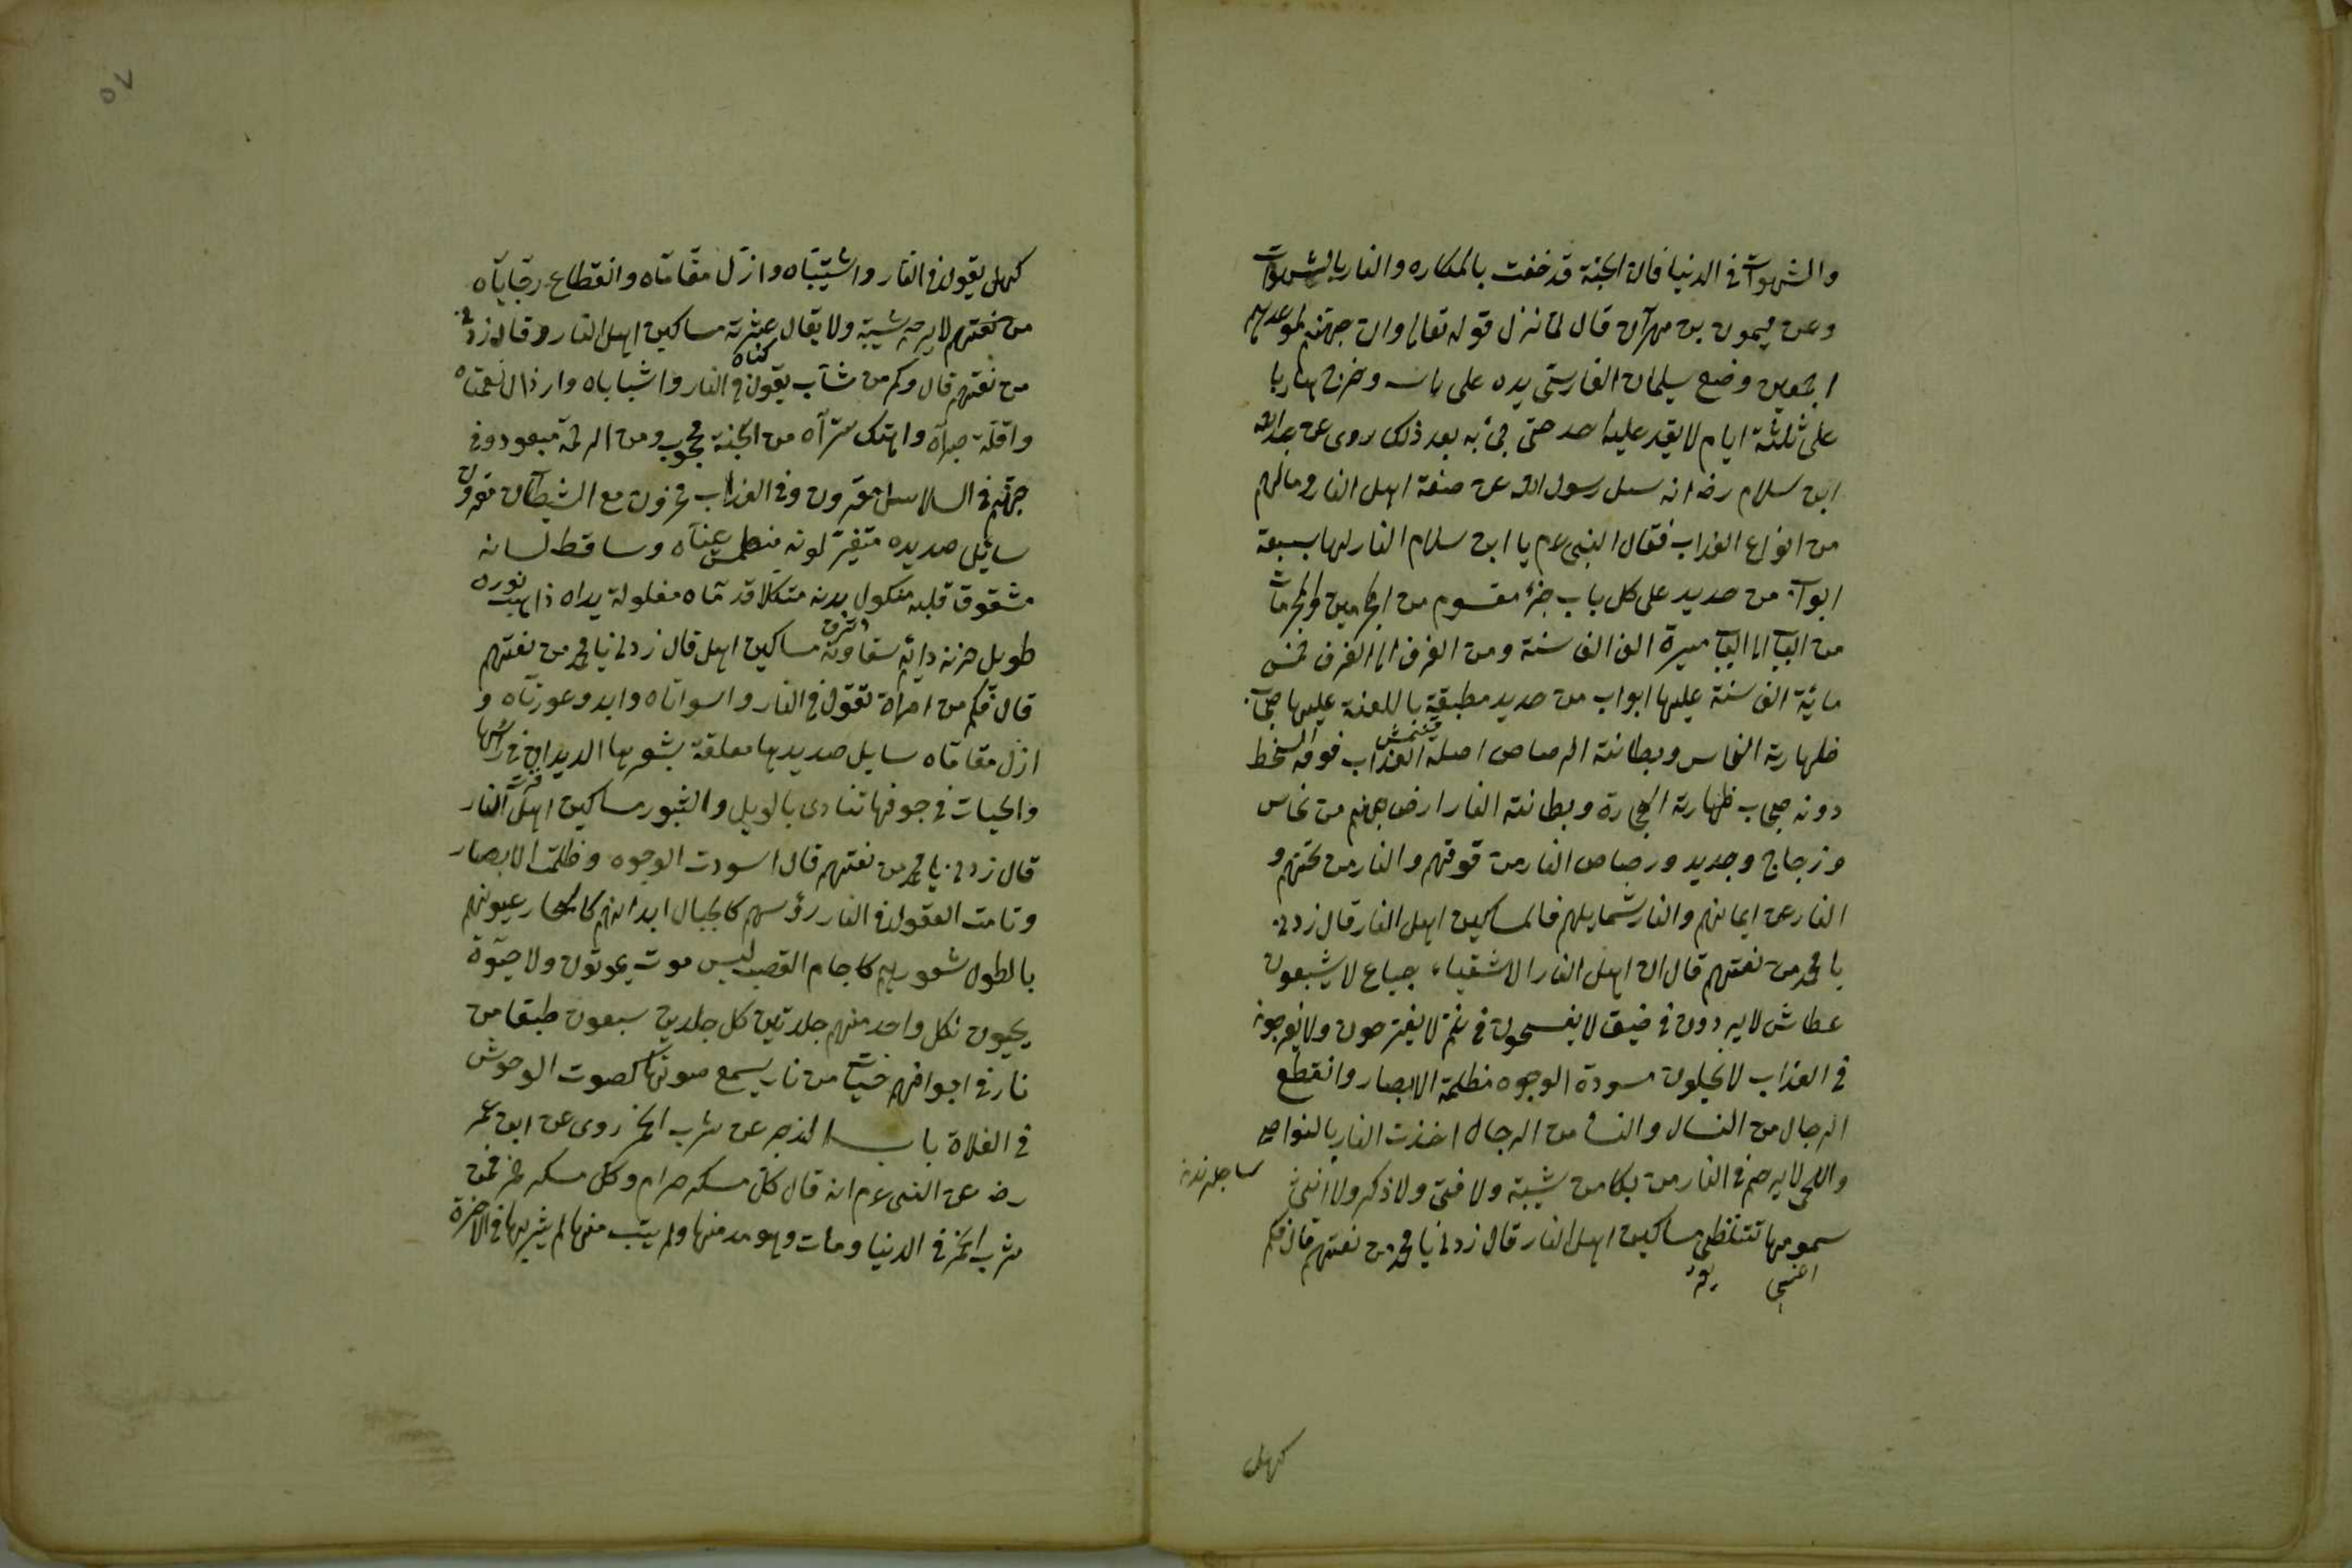 والشهوات فى الدنيا فان الجنة قد خفت بالمكاره والنار بالشهوات
وعن ميمون بن مهران قال لما نزل قوله تعالى وان جهنم لموعدهم
اجمعين وضع سلمان الفارسى يده على راسه وخرج هاربا
على ثلثة ايام لا يقدر عليه احد حتى جئ به بعد ذلك روى عن عبد الله
ابن سلام رضه انه سئل رسول الله عن صفة اهل النار ومالهم
من انواع العذاب فقال النبى عم يا ابن سلام النار لها سبعة
ابواب من حديد على كل باب جزء مقسوم من المجرمين والمجرمات
من الباب الى الباب مسيرة الف الف سنة ومن الغرف الى الغرف خمس
مائة الف سنة عليها ابواب من حديد مطبقة باللعنة عليها حجاب
ظهارته النحاس وبطانته الرصاص اصله العذاب فوقه السخط
دونه حجاب ظهارته الحجارة وبطانته النار ارض جهنم من نحاس
وزجاج وحديد ورصاص النار من فوقهم والنار من تحتهم و
النار عن ايمانهم والنار شمايلهم فالمساكين اهل النار قال زدنى
يا محمد من نعتهم قال ان اهل النار الاشقياء جياع لا يشبعون
عطاش لا يردون فى ضيق لا يفسحون فى غم لا يفترحون ولا يفرجون
فى العذاب لا يحيلون مسودة الوجوه مظلمة الابصار وانقطع
الرجال من النساء والنساء من الرجال اخذت النار بالنواصى
واللحى لا يرحم فى النار من بكا من شيبة ولا فتى ولا ذكر ولا انثى
سمومها تتلظى مساكين اهل النار قال زدنى يا محمد من نعتهم قال فكم
كهل
كهل يقول فى النار واشيبتاه وازل مقاماه وانقطاع رجاياه
من نعتهم لا يرحم شيبة ولا يقال عثرته مساكين اهل النار وقال زدنى
من نعتهم قال وكم من شاب يقول فى النار واشباباه وارذال نعمتاه
واقلة صبراه واهتك ستراه من الجنة محجوب ومن الرحمة مبعود وفى
جهنم فى السلاسل مقرون وفى العذاب محزون مع الشيطان مقرون
سائل صديده متغير لونه منطمس عيناه وساقط لسانه
مشقوق قلبه مأكول بدنه متكلا قدماه مغلولة يداه ذاهب نوره
طويل حزنه دائم شقاوته مساكين اهل قال زدنى يا محمد من نعتهم
قال فكم من امرأة تقول فى النار واسواتاه وابدو عورتاه و
ازل مقاماه سايل صديدها معلقة بشعرها الديدان فى راسها
والحيات فى جوفها تنادى بالويل والثبور مساكين اهل النار
قال زدنى يا محمد من نعتهم قال اسودت الوجوه وظلمت الابصار
وتامت العقول فى النار رؤسهم كالجبال ابدانهم كالبحار عيونهم
بالطول شعورهم كاجام القصب ليس موت يموتون ولا حيوة
يحيون لكل واحد منهم جلدتين كل جلدين سبعون طبقا من
نار فى اجوافهم حيات من نار يسمع صوتها كصوت الوحوش
فى الفلاة باب الزجر عن شرب الخمر روى عن ابن عمر
رضه عن النبى عم انه قال كل مسكر حرام وكل مسكر خمر فمن
شرب الخمر فى الدنيا ومات وهو مدمنها ولم يتب منها لم يشربها فى الاخرة